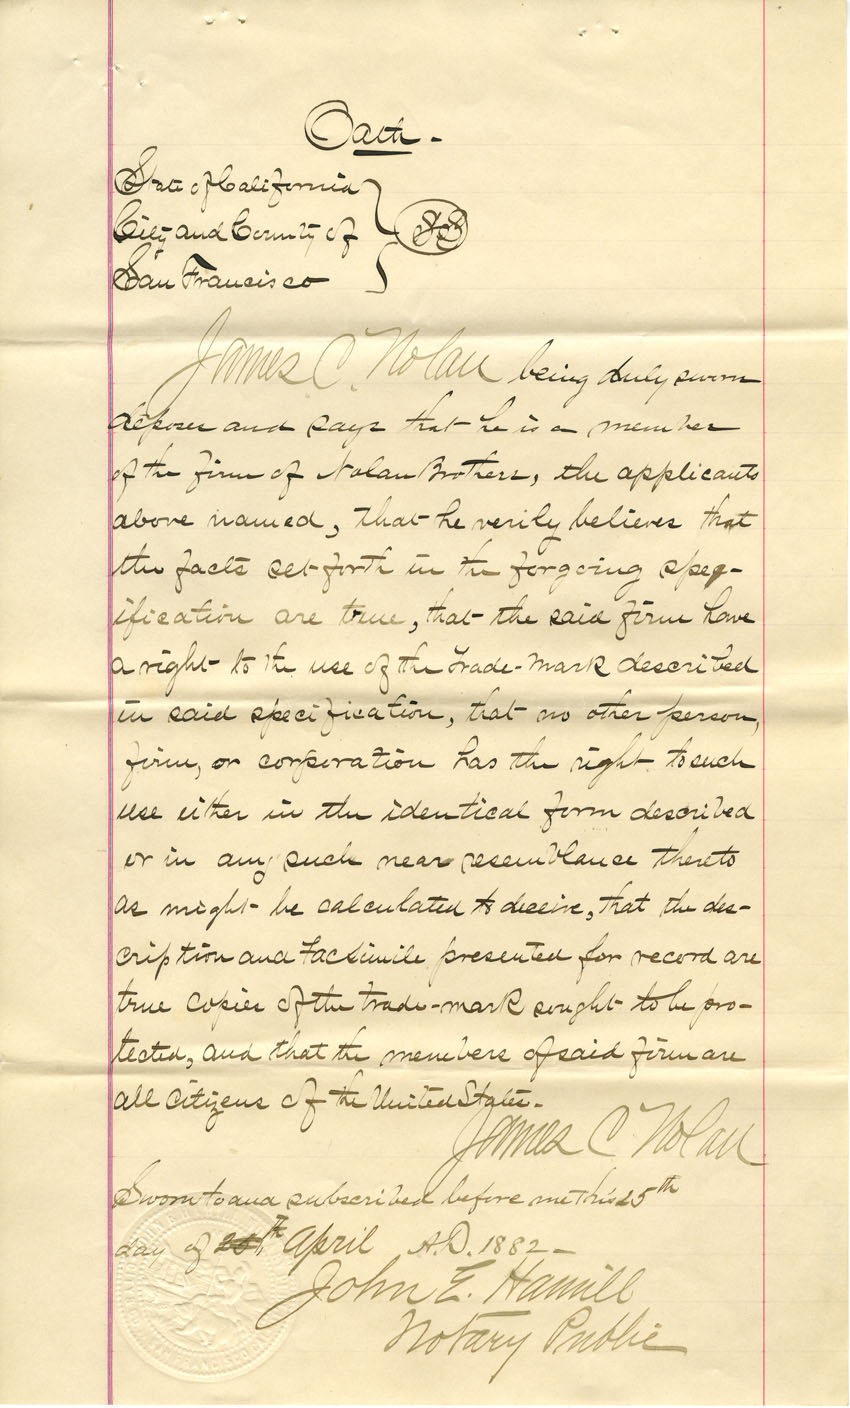 Oath -
State of California
City and County of
San Francisco
SS
James C. Nolan being duly sworn
deposes and says that he is a member
of the firm of Nolan Brothers, the applicants
above named, that he verily believes that
the facts set forth in the forgoing spec-
ification are true, that the said firm have
a right to the use of the trade-mark described
in said specification, that no other person,
firm, or corporation has the right to such
use either in the identical form described
or in any such near resemblance thereto
as might be calculated to deceive, that the des-
cription and facsimile presented for record are
true copies of the trade-mark sought to be pro-
tected, and that the members of said firm are
all citizens of the United States.
James C Nolan
Sworn to and subscribed before me this 25th
day of April A.D. 1882 -
John E. Hamill
Notary Public